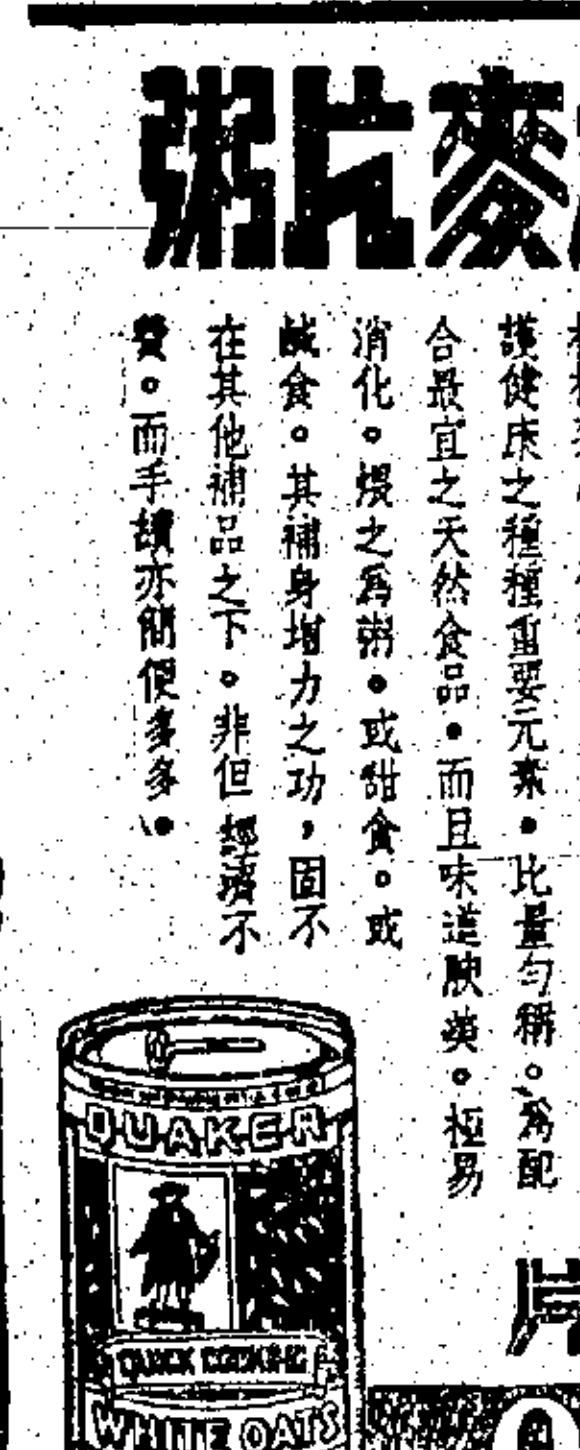 麥片粥
護健康之種種重要元素。比量勻稱。為配
合最宜之天然食品。而且味道腴美。極易
消化。煨之為粥。或甜食。或
鹹食。其補身增力之功，固不
在其他補品之下。非但經濟不
費。而手續亦簡便多多。
QUAKER
QUICK COOKING
WHITE OATS
片